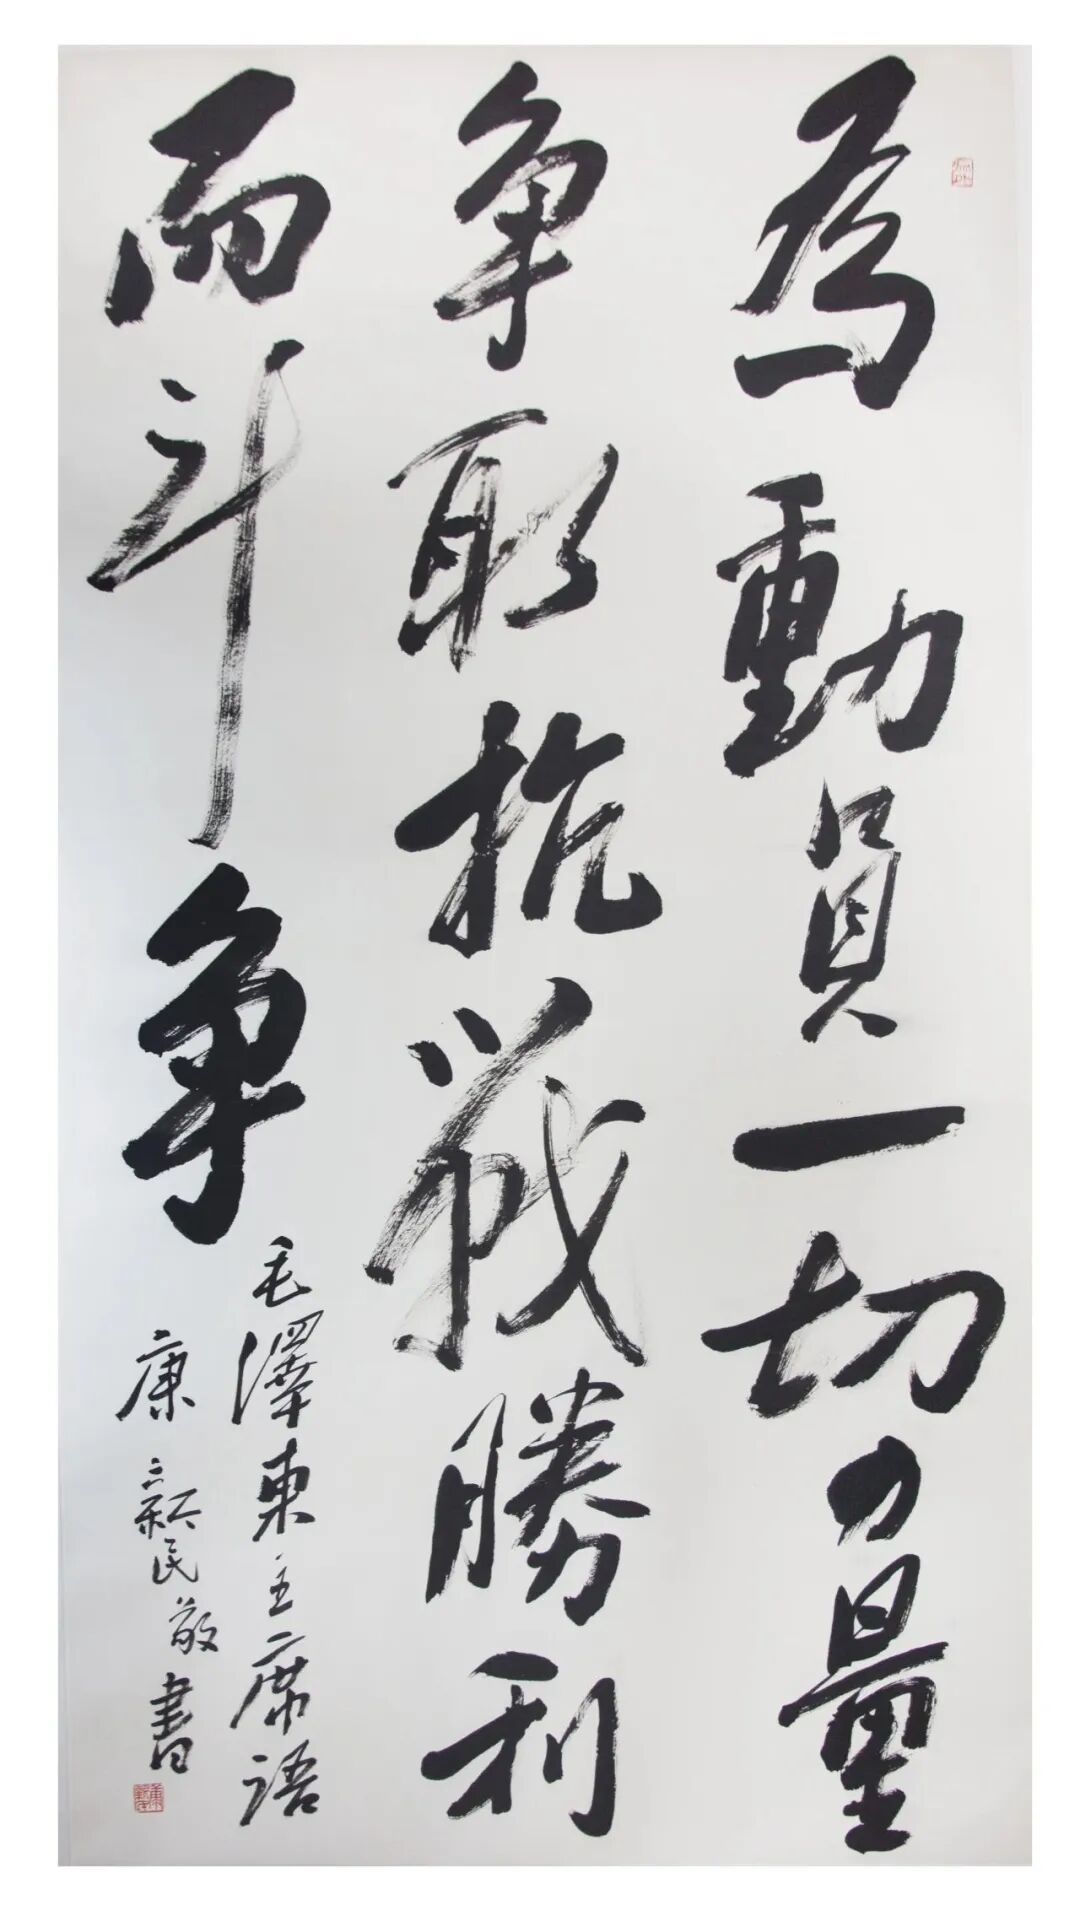 為動員一切力量
争取抗戰勝利
而斗争
毛澤東主席語
康新民敬書